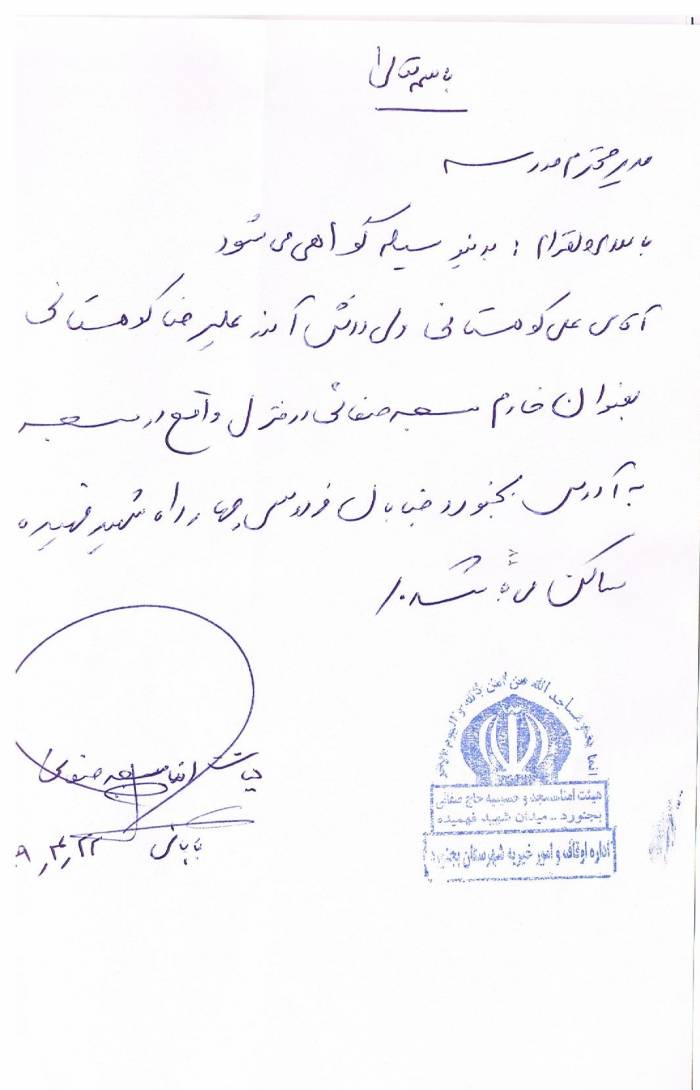 باسمه تعالی
مدیر محترم مدرسه
با سلام و احترام : بدینوسیله گواهی می شود
آقای علی کوهستانی ولی دانش آموز علیرضا کوهستانی
بعنوان خادم مسجد صفائی در منزل واقع در مسجد
به آدرس بجنورد خیابان فردوسی چهارراه شهید فهمیده
ساکن می باشد./
هیأت امناء مسجد صفائی
انما یعمر مساجد الله من امن بالله و الیوم الاخر
هیئت امناء مسجد و حسینیه حاج صفائی
بجنورد - میدان شهید فهمیده
اداره اوقاف و امور خیریه شهرستان بجنورد